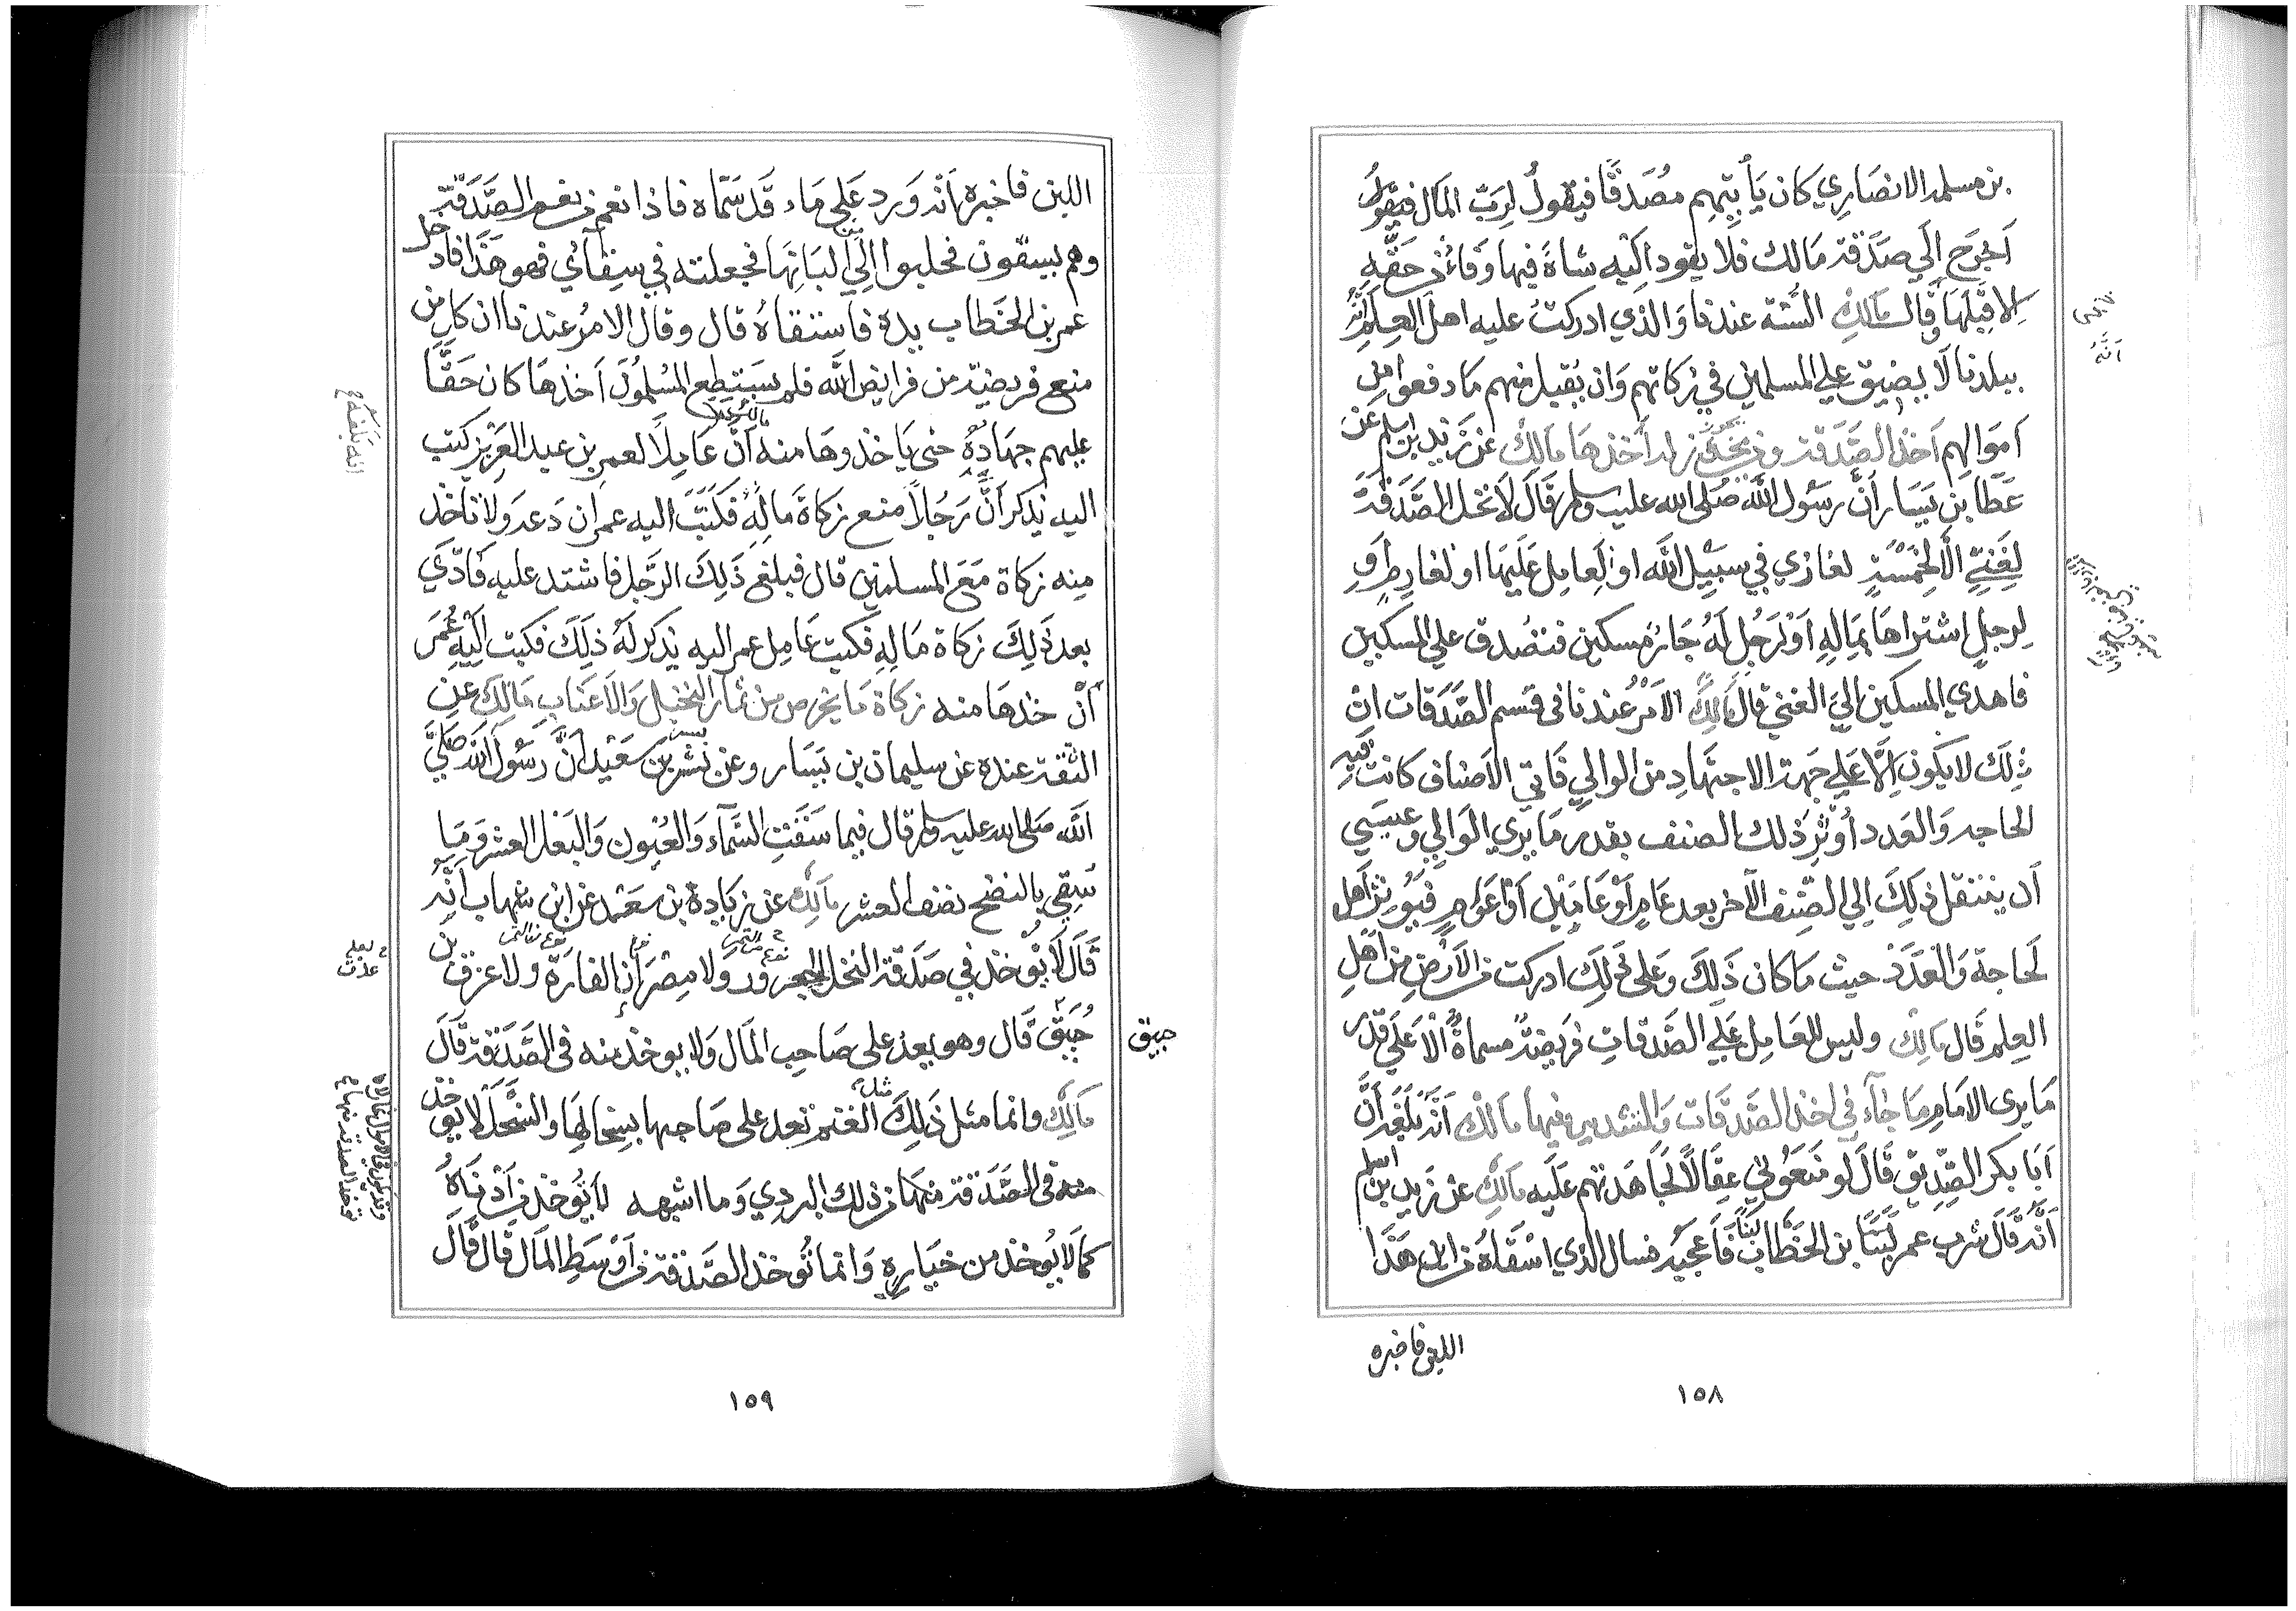 بن مسلمة الانصاري كان يأتيهم مصدقا فيقول لرب المال فيقول
اخرج الي صدقة مالك فلا يقود اليه شاة فيها وفاء من حقه
الا قبلها وقال مالك السنة عندنا والذي ادركت عليه اهل العلم
ببلدنا لا يضيق علي المسلمين في زكاتهم وان يقبل منهم ما دفعوا من
اموالهم اخذ الصدقة ومن يجوز له اخذها مالك عن زيد بن اسلم عن
عطا بن يسار ان رسول الله صلي الله عليه وسلم قال لا تحل الصدقة
لغني الا لخمسة لغازي في سبيل الله او لعامل عليها او لغارم او
لرجل اشتراها بماله او لرجل له جار مسكين فتصدق علي المسكين
فاهدي المسكين الي الغني قال مالك الامر عندنا في قسم الصدقات ان
ذلك لا يكون الا علي جهة الاجتهاد من الوالي فاي الاصناف كانت فيه
الحاجه والعدد اوثر ذلك الصنف بقدر ما يري الوالي وعسي
ان ينتقل ذلك الي الصنف الآخر بعد عام او عامين او اعوام فيوثر اهل
لحاجة والعدد حيث ما كان ذلك وعلي ذلك ادركت من الارض من اهل
العلم قال مالك وليس للعامل علي الصدقات فريضة مسماة الا علي قدر
ما يرى الامام ما جآء في اخذ الصدقات والتشديد فيها مالك انه بلغه ان
ابا بكر الصديق قال لو منعوني عقالا لجاهدتهم عليه مالك عن زيد بن اسلم
انه قال شرب عمر لبنا بن الخطاب لبنا فاعجبه فسال الذي اسقاه من اين هذا
اللبن فاخبره
١٥٨
اللبن فاخبره انه ورد علي ماء قد سماه فاذا نعم من نعم الصدقة
وهم يسقون فحلبوا الي البانها فجعلته في سقآئي فهو هذا فادخل
عمر بن الخطاب يده فاستقاه قال وقال الامر عندنا ان كل من
منع فريضة من فرايض الله فلم يستطع المسلمون اخذها كان حقا
عليهم جهاده حتى ياخذوها منه ان عاملا لعمر بن عبد العزيز كتب
اليه يذكر ان رجلا منع زكاة ماله فكتب اليه عمر ان دعه ولا تاخذ
منه زكاة مع المسلمين قال فبلغ ذلك الرجل فاشتد عليه فادي
بعد ذلك زكاة ماله فكتب عامل عمر اليه يذكر له ذلك فكتب اليه عمر
أن خذها منه زكاة ما يخرص من ثمار النخيل والاعناب مالك عن
الثقة عنده عن سليمان بن يسار وعن بشر بن سعيد ان رسول الله صلي
الله صلى الله عليه وسلم قال فيما سقت السمآء والعيون والبعل العشر وما
سقي بالنضح نصف العشر مالك عن زيادة بن سعد عن ابن شهاب انه
قال لا يوخذ في صدقة النخل الجعرور ولا مصران الفارة ولا عزق بن
حبيق قال وهو يعد على صاحب المال ولا يوخذ منه فى الصدقة قال
حبيق
مالك وانما مثل ذلك الغنم تعد على صاحبها بسخالها والسخل لا يوخذ
منه فى الصدقة منها من ذلك البردي وما اشبهه لا يوخذ من ادناه
كما لا يوخذ من خياره وانما توخذ الصدقة من اوسط المال قال قال
١٥٩